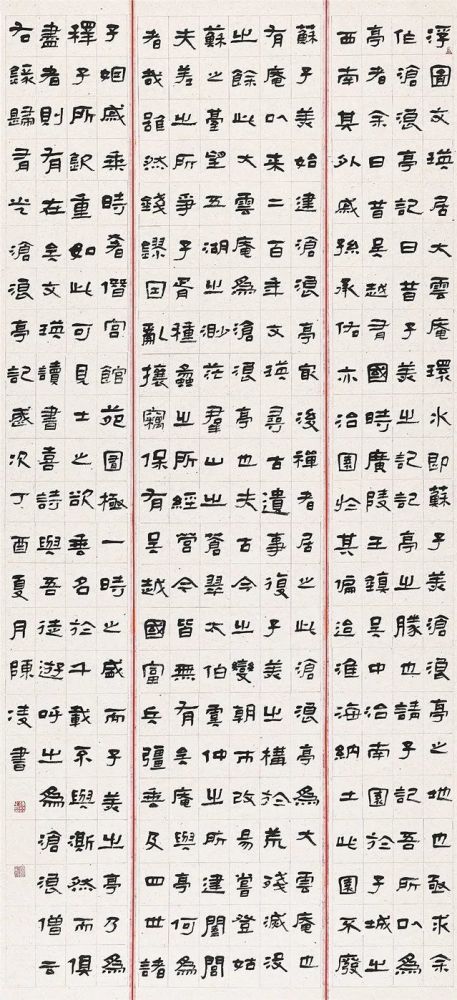 浮圖文瑛居大雲庵環水即蘇子美滄浪亭之地也亟求余
作滄浪亭記曰昔子美之記記亭之勝也請子記吾所以為
亭者余曰昔吳越有國時廣陵王鎮吳中治南園於子城之
西南其外戚孫承佑亦治園於其偏迨淮海納土此園不廢
蘇子美始建滄浪亭冣後禪者居之此滄浪亭為大雲庵也
有庵以來二百年文瑛尋古遺事復子美之構於荒殘滅沒
之餘此大雲庵為滄浪亭也夫古今之變朝市改易嘗登姑
蘇之臺望五湖之渺茫羣山之蒼翠太伯虞仲之所建闔閭
夫差之所爭子胥種蠡之所經營今皆無有矣庵與亭何為
者哉雖然錢鏐因亂攘竊保有吳越國富兵彊垂及四世諸
子姻戚乘時奢僭宮館苑囿極一時之盛而子美之亭乃為
釋子所欽重如此可見士之欲垂名於千載不與澌然而俱
盡者則有在矣文瑛讀書喜詩與吾徒遊呼之為滄浪僧云
右錄歸有光滄浪亭記歲次丁酉夏月陳凌書